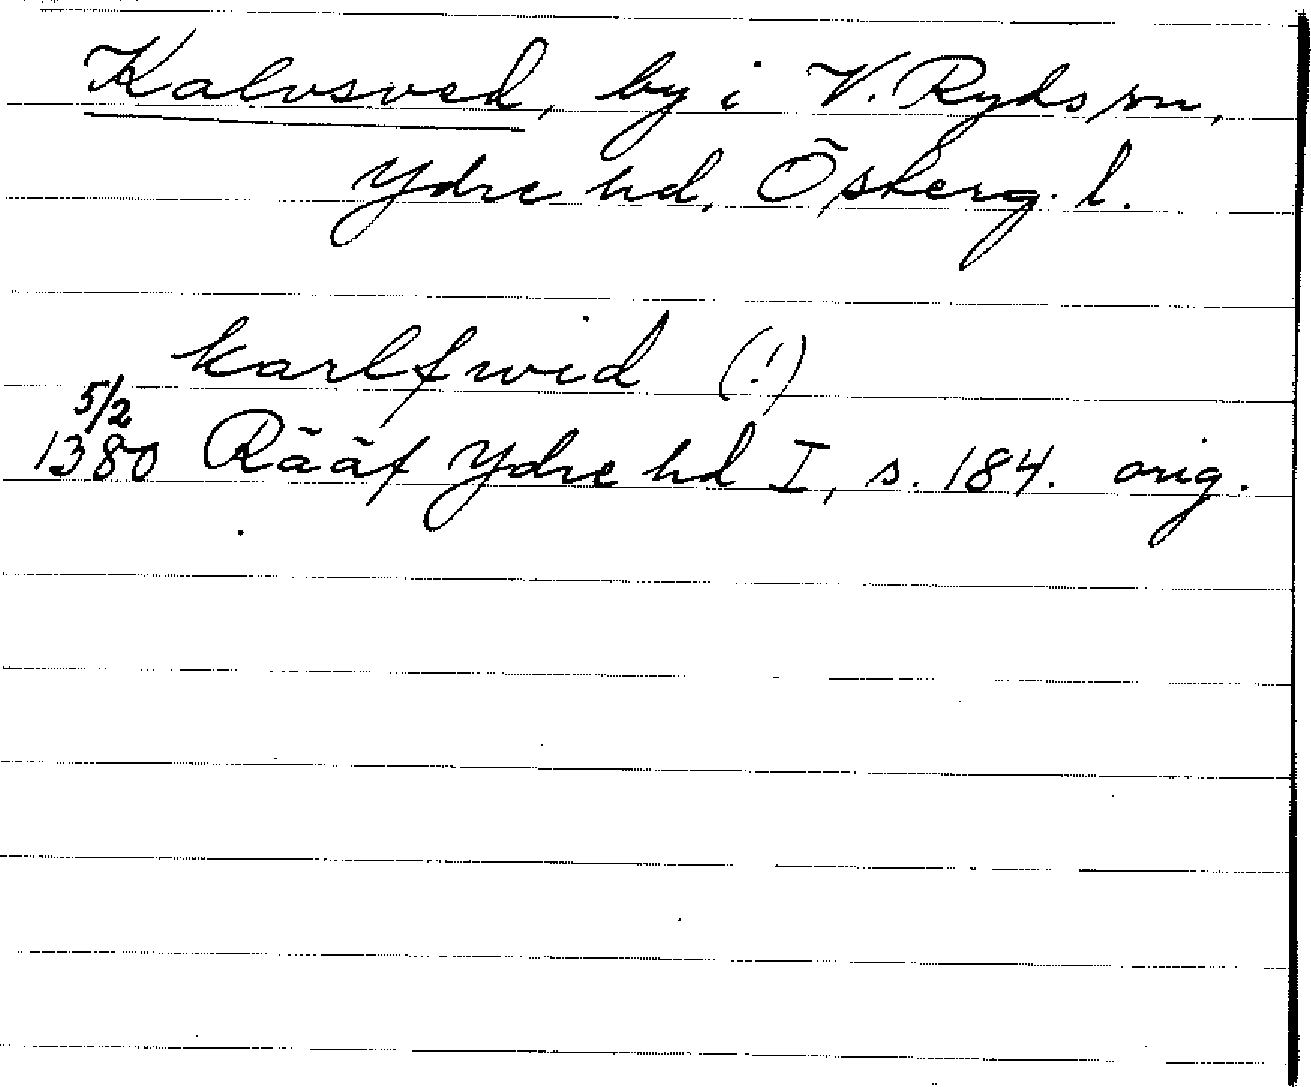 Kalvsved, by i V. Ryds sn,
Ydre hd, Österg. l.
karlfwid (!)
5/2
1380 Rääf Ydre hd I, s. 184. orig.